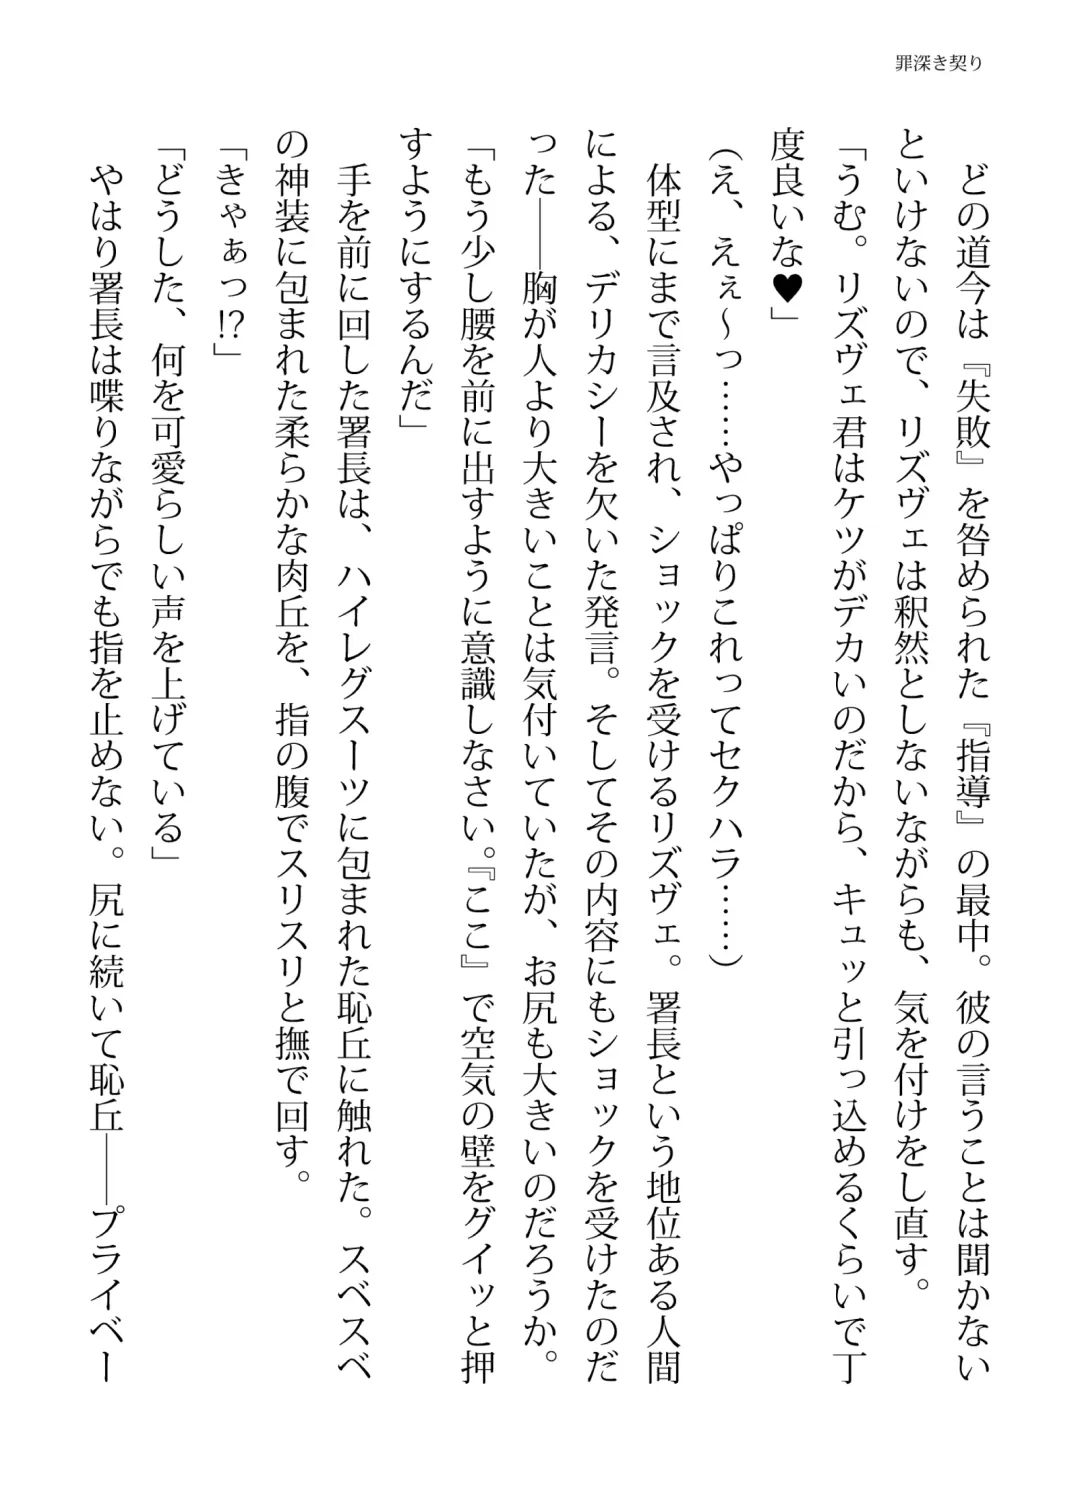 罪深き契り
　どの道今は『失敗』を咎められた『指導』の最中。彼の言うことは聞かない
といけないので、リズヴェは釈然としないながらも、気を付けをし直す。
「うむ。リズヴェ君はケツがデカいのだから、キュッと引っ込めるくらいで丁
度良いな♥」
（え、えぇ～っ……やっぱりこれってセクハラ……）
　体型にまで言及され、ショックを受けるリズヴェ。署長という地位ある人間
による、デリカシーを欠いた発言。そしてその内容にもショックを受けたのだ
った――胸が人より大きいことは気付いていたが、お尻も大きいのだろうか。
「もう少し腰を前に出すように意識しなさい。『ここ』で空気の壁をグイッと押
すようにするんだ」
　手を前に回した署長は、ハイレグスーツに包まれた恥丘に触れた。スベスベ
の神装に包まれた柔らかな肉丘を、指の腹でスリスリと撫で回す。
「きゃぁっ!?」
「どうした、何を可愛らしい声を上げている」
　やはり署長は喋りながらでも指を止めない。尻に続いて恥丘――プライベー